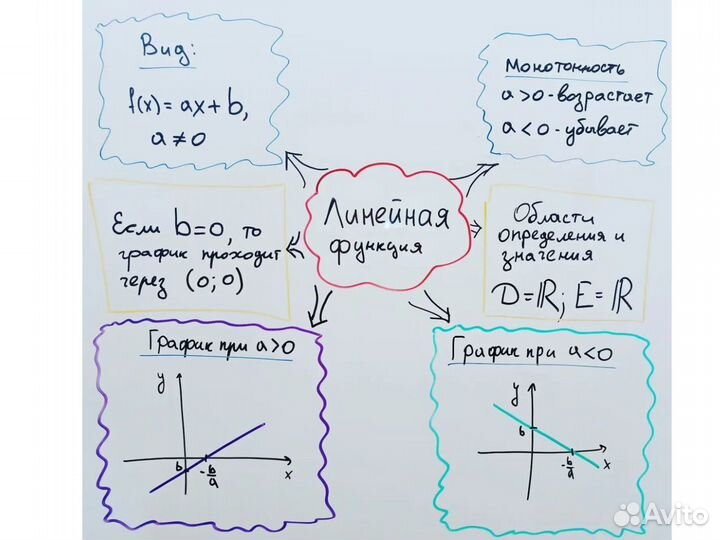 Вид:
f(x)=ax+b,
a≠0
Монотонность
a>0-возрастает
a<0-убывает
Линейная
функция
Если b=0, то
график проходит
через (0;0)
Области
определения и
значения
D=ℝ; E=ℝ
График при a>0
y
b
-b/a
x
График при a<0
y
b
-b/a
x
Avito